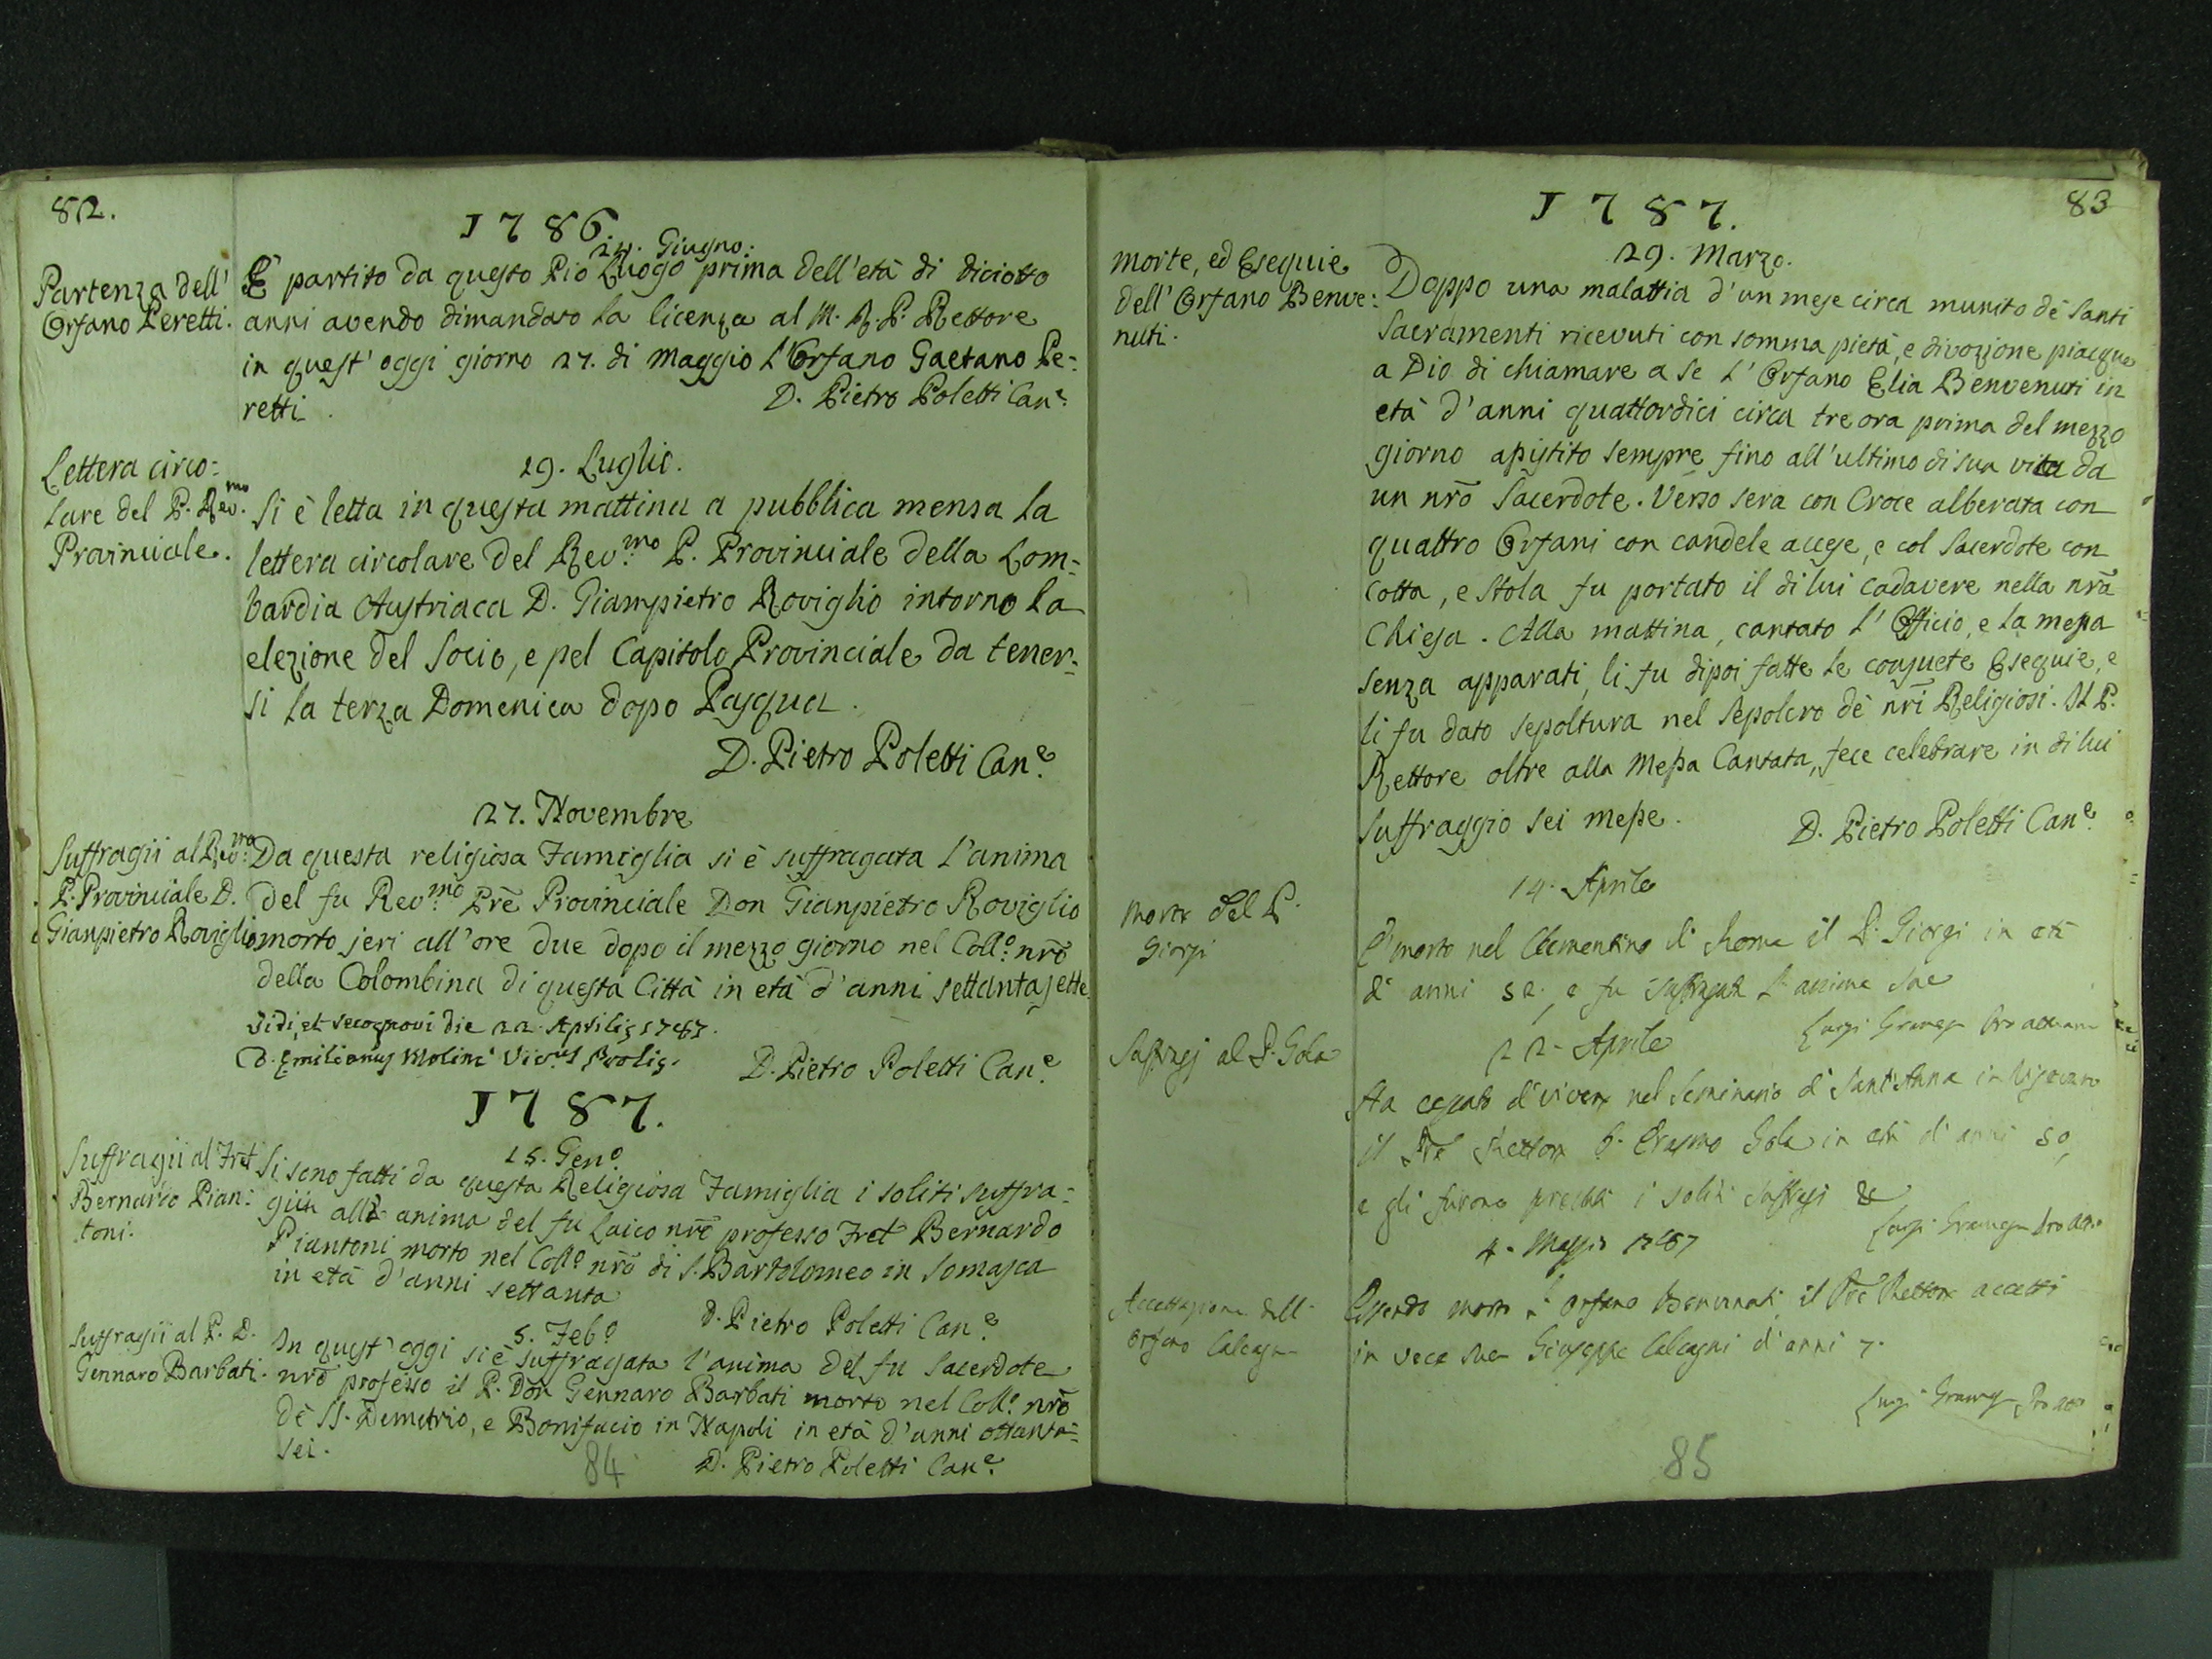 82.
1786.
24. Giugno.
Partenza dell'
Orfano Peretti.
È partito da questo Pio Luogo prima dell'età di diciotto
anni avendo dimandato la licenza al M. R. P. Rettore
in quest' oggi giorno 27. di Maggio l'Orfano Gaetano Pe-
retti.
D. Pietro Poletti Canc.e
29. Luglio.
Lettera circo-
lare del P. Rev.mo
Provinciale.
Si è letta in questa mattina a pubblica mensa la
lettera circolare del Rev.mo P. Provinciale della Lom-
bardia Austriaca D. Giampietro Roviglio intorno la
elezione del Socio, e pel Capitolo Provinciale da tener-
si la terza Domenica dopo Pasqua.
D. Pietro Poletti Can.e
27. Novembre
Suffragii al Rev.mo
P. Provinciale D.
Gianpietro Roviglio
Da questa religiosa Famiglia si è suffragata l'anima
del fu Rev.mo Prē Provinciale Don Gianpietro Roviglio
morto jeri all'ore due dopo il mezzo giorno nel Coll.o nrō
della Colombina di questa Città in età d'anni settantasette.
Vidi, et recognovi die 22. Aprilis 1787.
D. Emilianus Molina
D. Pietro Poletti Can.e
1787.
15. Gen.o
Suffragii al Frat
Bernardo Pian-
toni.
Si sono fatti da questa Religiosa Famiglia i soliti suffra-
gii all' anima del fu Laico nrō professo Frat Bernardo
Piantoni morto nel Coll.o nrō di S. Bartolomeo in Somasca
in età d'anni settanta
D. Pietro Poletti Can.e
5. Feb.o
Suffragii al P. D.
Gennaro Barbati.
In quest' oggi si è suffragata l'anima del fu Sacerdote
nrō professo il P. Don Gennaro Barbati morto nel Coll.o nrō
dè SS. Demetrio, e Bonifacio in Napoli in età d'anni ottanta-
sei.
D. Pietro Poletti Can.e
84
83
1787.
29. Marzo.
Morte, ed Esequie
dell' Orfano Benve-
nuti.
Doppo una malattia d'un mese circa munito dè Santi
Sacramenti ricevuti con somma pietà, e divozione piacque
a Dio di chiamare a se l'Orfano Elia Benvenuti in
età d'anni quattordici circa tre ora prima del mezzo
giorno assistito sempre fino all'ultimo di sua vita da
un nrō Sacerdote. Verso sera con Croce alberata con
quattro Orfani con candele accese, e col Sacerdote con
Cotta, e Stola fu portato il di lui cadavere nella nrā
Chiesa. Alla mattina, cantato l'Officio, e la messa
senza apparati, li fu dipoi fatte le consuete Esequie, e
li fu dato sepoltura nel Sepolcro dè nrī Religiosi. Il P.
Rettore oltre alla Messa Cantata, fece celebrare in di lui
suffraggio sei messe.
D. Pietro Poletti Can.e
14. Aprile
Morte del P.
Giorgi
È morto nel Clementino di Roma il P. Giorgi in età
di anni e fu suffragata l'anima sua
Luigi
22. Aprile
Suffragj al P. Gola
Ha cessato di vivere nel Seminario di Sant'Anna in Vigevano
il Prē Rettore D. Erasmo Gola in età di anni
e gli furono prestati i soliti suffragi &
Luigi
4. Maggio 1787
Accettazione dell'
Orfano Calcagni
Essendo morto l'Orfano Benvenuti il Prē Rettore accettò
in vece sua Giuseppe Calcagni d'anni 7.
Luigi
85